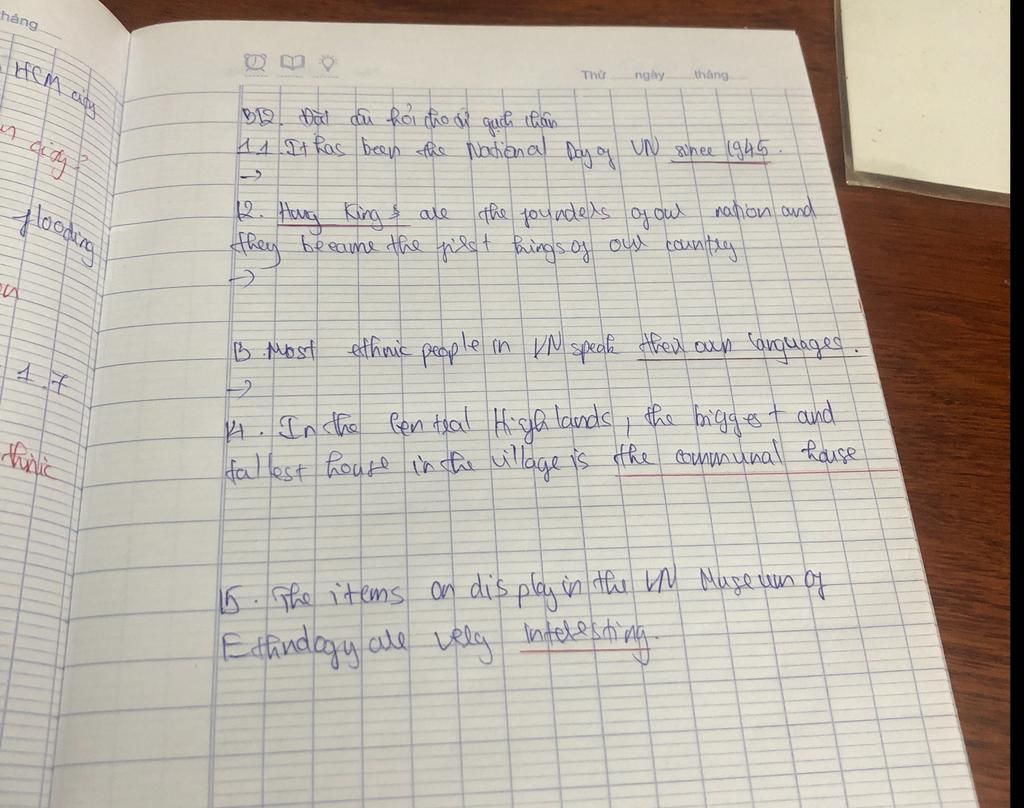 háng
HCM city
city?
flooding
1.7
thnic
Thứ ngày tháng
B12. Đặt câu hỏi cho từ gạch chân
11. It has been the National Day of VN since 1945.
→
12. Hung Kings are the founders of our nation and
they became the first kings of our country
→
13. Most ethnic people in VN speak their own languages.
→
14. In the Central Highlands, the biggest and
tallest house in the village is the communal house
15. The items on display in the VN Museum of
Ethnology are very interesting.